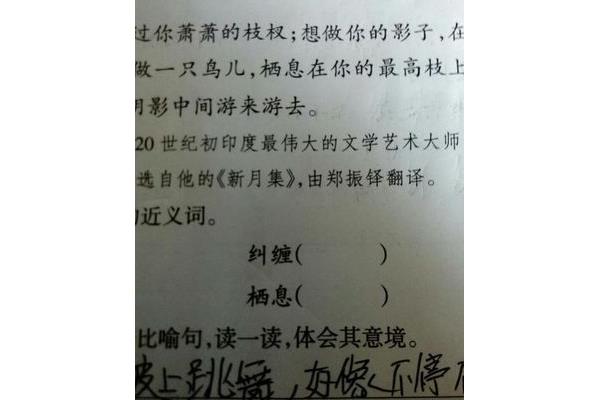 过你萧萧的枝杈;想做你的影子,在
做一只鸟儿,栖息在你的最高枝上
影中间游来游去。
20世纪初印度最伟大的文学艺术大师
选自他的《新月集》,由郑振铎翻译。
近义词。
纠缠(      )
栖息(      )
比喻句,读一读,体会其意境。
上跳舞,好像不停